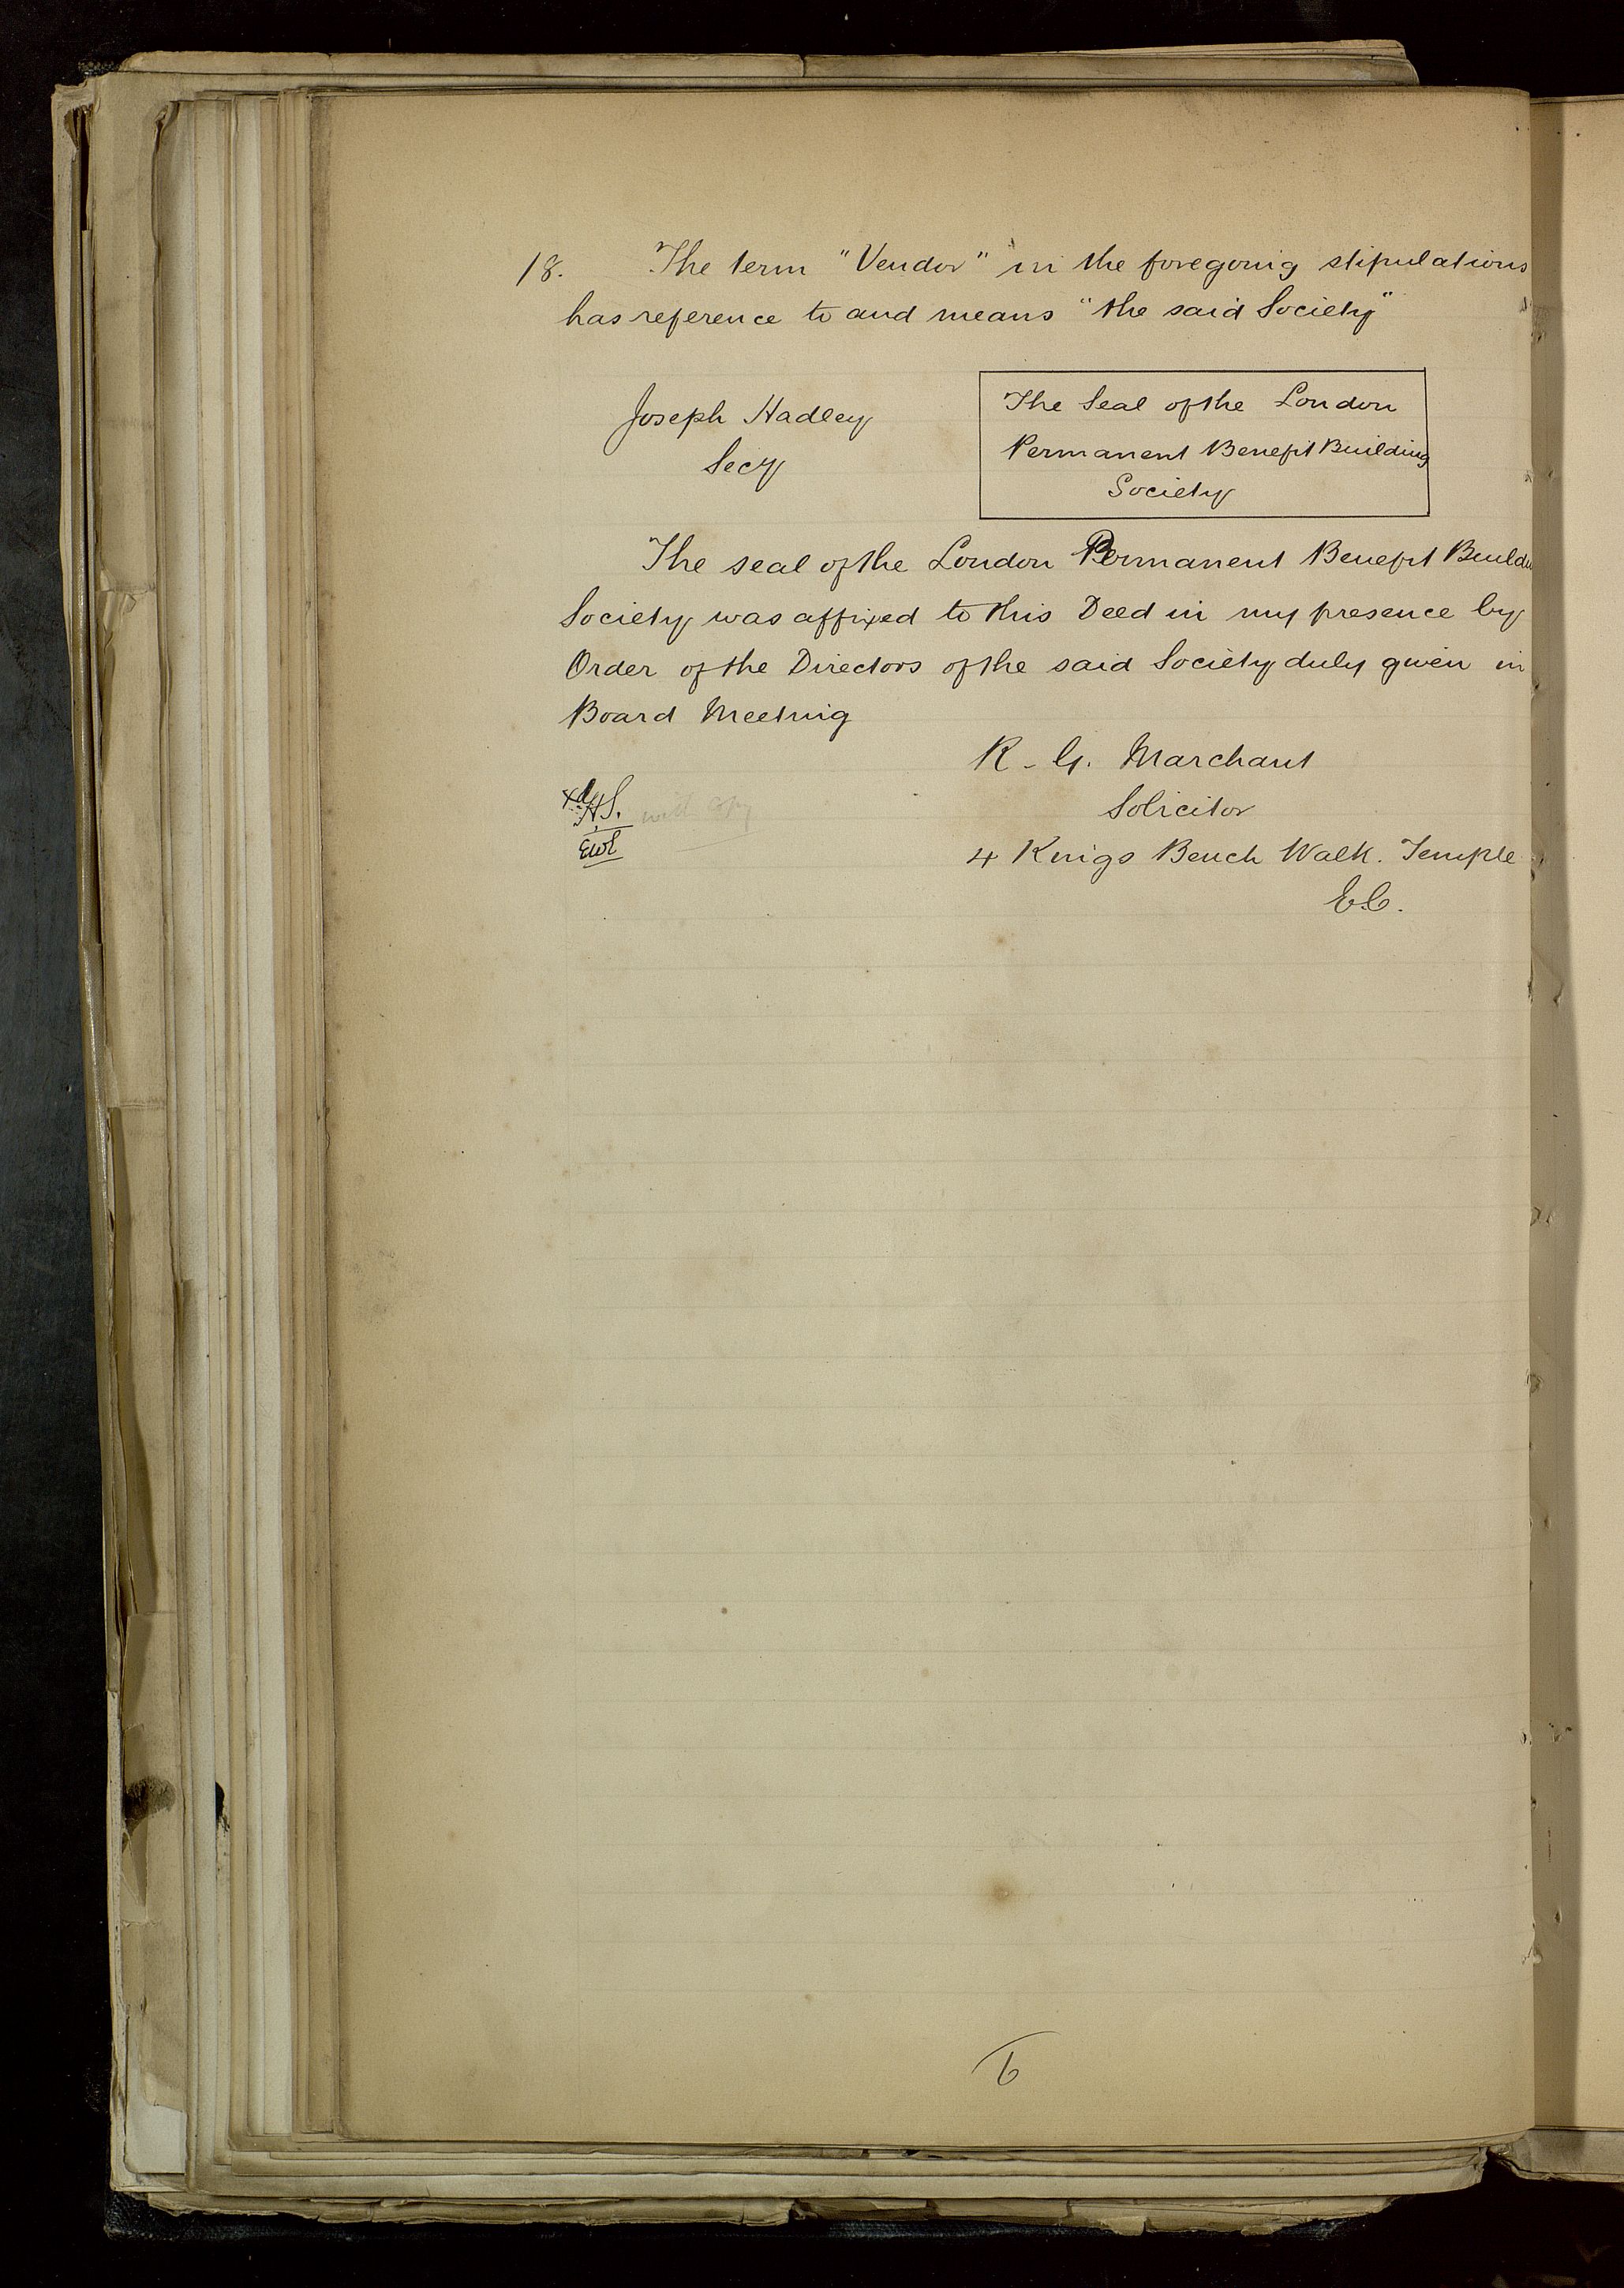 18. The term "Vendor" in the foregoing stipulations
has reference to and means "the said Society"
Joseph Hadley
Secy
The Seal of the London
Permanent Benefit Building
Society
The seal of the London Permanent Benefit Buildi
Society was affixed to this Deed in my presence by
Order of the Directors of the said Society duly given in
Board Meeting
R. G. Marchant
Solicitor
4 Kings Bench Walk. Temple
E.C.
Xd
H.S. with copy
EWL
6